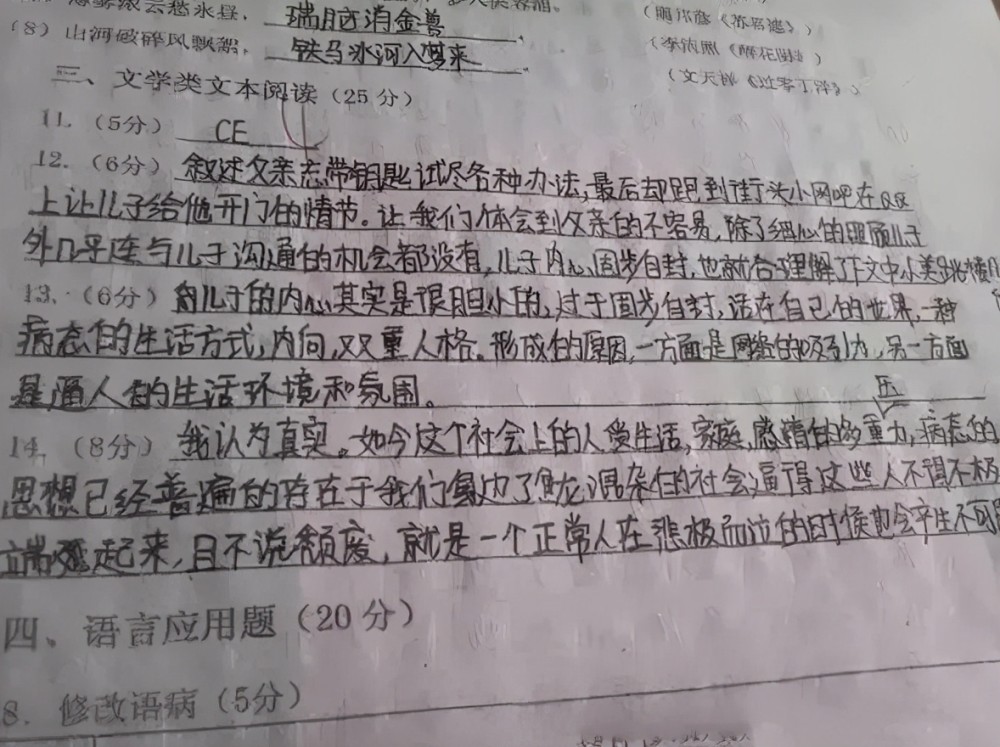 薄雾浓云愁永昼， 瑞脑消金兽 。
（周邦彦《苏幕遮》）
（8）山河破碎风飘絮， 铁马冰河入梦来 。
（李清照《醉花阴》）
（文天祥《过零丁洋》）
三、文学类文本阅读（25分）
11.（5分） CE
12.（6分） 叙述父亲忘带钥匙试尽各种办法，最后却跑到街头小网吧在QQ
上让儿子给他开门的情节。让我们体会到父亲的不容易，除了细心的照顾儿子
外几乎连与儿子沟通的机会都没有，儿子内心固步自封，也就合理解了下文中小美跳楼
13.（6分） 儿子的内心其实是很胆小的，过于固步自封，活在自己的世界，一种
病态的生活方式，内向，双重人格。形成的原因，一方面是网络的吸引力，另一方面
是逼人的生活环境和氛围。
压
14.（8分） 我认为真实。如今这个社会上的人受生活，家庭，感情的多重力，病态的
思想已经普遍的存在于我们身边了 鱼龙混杂的社会逼得这些人不得不极
端起来，且不说颓废，就是一个正常人在悲极而泣的时候也会产生不可
四、语言应用题（20分）
8. 修改语病（5分）